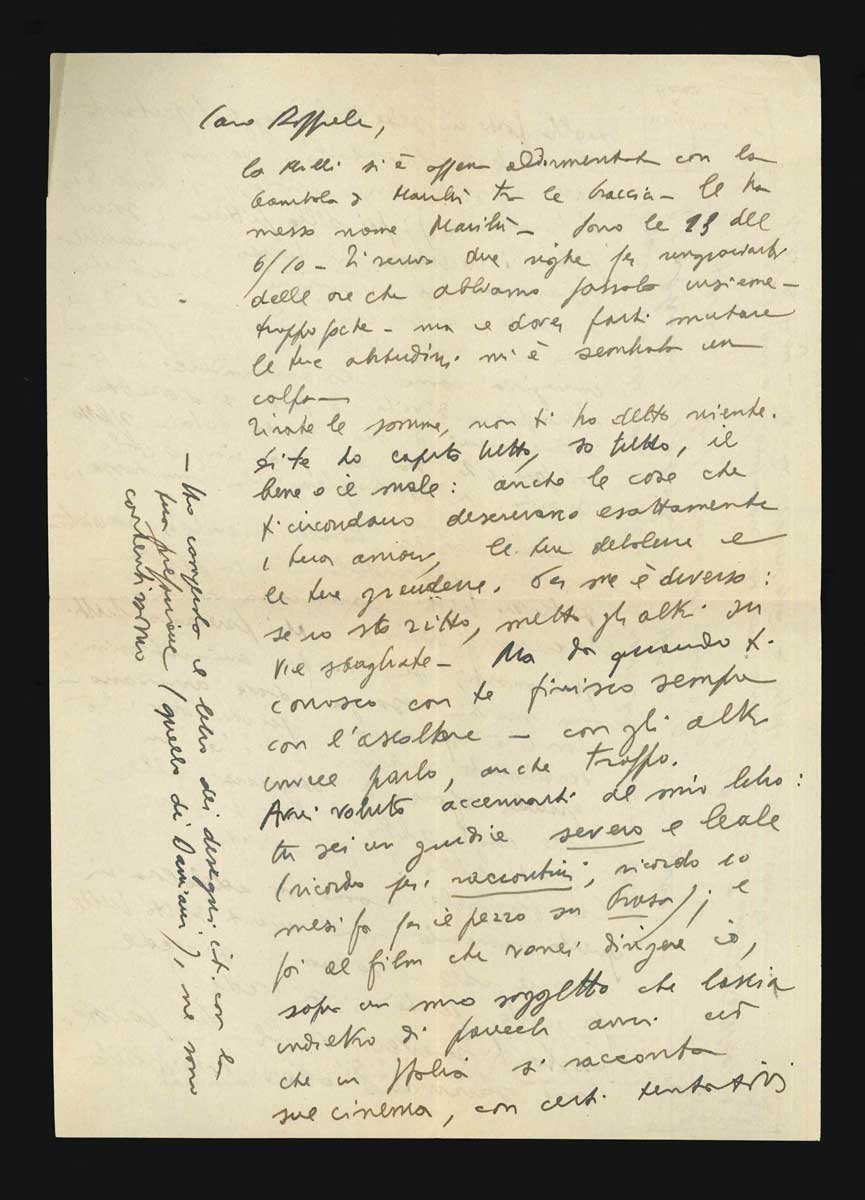 Caro Raffaele,
la Milli si è appena addormentata con la
bambola di Marilù tra le braccia – le ha
messo nome Marilù – Sono le 23 del
6/10 – Ti scrivo due righe per ringraziarti
delle ore che abbiamo passato insieme –
troppo poche – ma e dover farti mutare
le tue abitudini mi è sembrata una
colpa –
Tirate le somme, non ti ho detto niente.
di te ho capito tutto, so tutto, il
bene o il male: anche le cose che
ti circondano descrivano esattamente
i tuoi amori, le tue debolezze e
le tue grandezze. Per me è diverso:
se io sto zitto, metto gli altri su
vie sbagliate – Ma da quando ti
conosco con te finisco sempre
con l'ascoltare – con gli altri
invece parlo, anche troppo.
Avrei voluto accennarti del mio libro:
tu sei un giudice severo e leale
(ricordo per i raccontini, ricordo
mesi fa per il pezzo su); e
poi al film che vorrei dirigere io,
sopra un mio soggetto che lascia
indietro di parecchi anni ciò
che in Italia si racconta
sul cinema, con certi tentativi
– Ho comperato il libro dei disegni int. con la
tua prefazione (quello di Damiani), ne sono
contentissimo